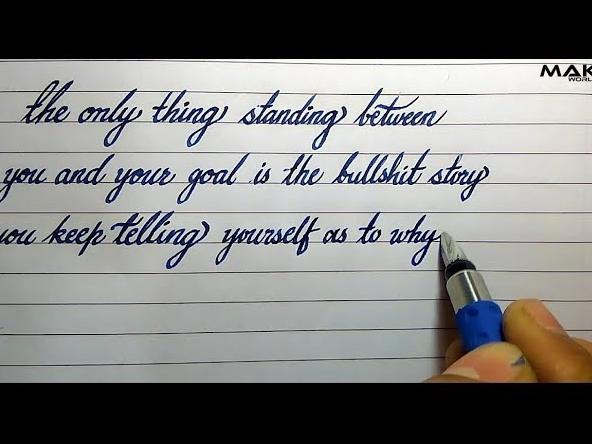 MAK
WORL
the only thing standing between
you and your goal is the bullshit story
you keep telling yourself as to why